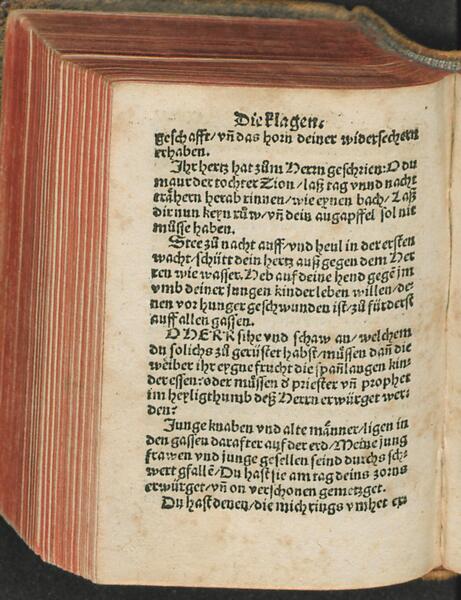 Die klagen.
geschafft/ vñ das horn deiner widersechern
erhaben.
Ihr hertz hat zům Herrn geschrien: O du
maur der tochter Zion/ laß tag vnnd nacht
trähern herab rinnen/ wie eynen bach/ Laß
dir nun keyn růw/ vñ dein augapffel sol nit
müsse haben.
Stee zů nacht auff/ vnd heul in der ersten
wacht/ schütt dein hertz auß gegen dem Her
ren wie wasser. Heb auf deine hend gegē jm
vmb deiner jungen kinder leben willen/ de-
nen vor hunger geschwunden ist/ zů fürderst
auff allen gassen.
O HERR sihe vnd schaw an/ welchem
du solichs zů gerüstet habst/ müssen dañ die
weiber ihr eygne frucht die spañlangen kin-
der essen: oder müssen d̕ priester vñ prophet
im heyligthumb deß Herrn erwürget wer-
den?
Junge knaben vnd alte männer/ ligen in
den gassen darafter auf der erd/ Meine jung
frawen vnd junge gesellen seind durchs sch-
wert gfallē/ Du hast sie am tag deins zorns
erwürget/ vñ on verschonen gemetzget.
Du hast denen/ die mich rings vmher